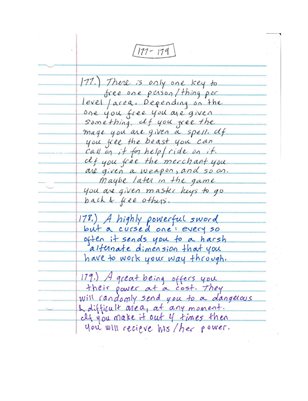 177-179
177.) There is only one key to
free one person/thing per
level/area. Depending on the
one you free you are given
something. If you free the
mage you are given a spell. If
you free the beast you can
call on it for help/ride on it.
If you free the merchant you
are given a weapon, and so on.
Maybe later in the game
you are given master keys to go
back & free others.
178.) A highly powerful sword
but a cursed one: every so
often it sends you to a harsh
alternate dimension that you
have to work your way through.
179.) A great being offers you
their power at a cost. They
will randomly send you to a dangerous
& difficult area, at any moment.
If you make it out 4 times then
you will recieve his/her power.